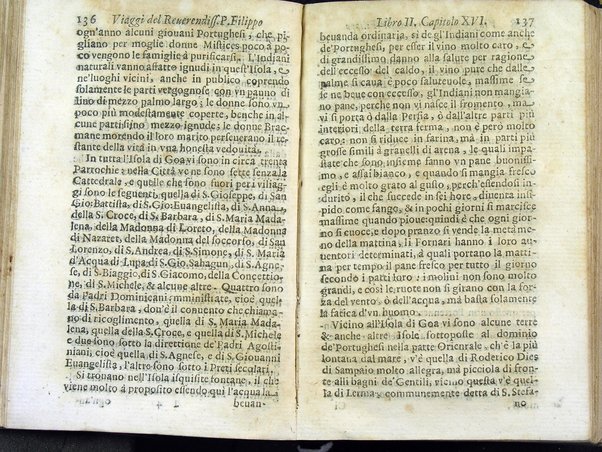 136 Viaggi del Reuerendiss. P. Filippo
ogn'anno alcuni giouani Portughesi, che pi-
gliano per moglie donne Mistices poco à po-
co vengono le famiglie à purificarsi. L'Indiani
naturali vanno assatto ignudi in quest'Isola, e
ne'luoghi vicini, anche in publico coprendo
solamente le parti vergognose con vn panno di
lino di mezzo palmo largo; le donne sono vn
poco più modestamente coperte, benche in al-
cune parti sijno mezzo ignude; le donne Brac-
mane morendo il loro marito perseuerano il re-
stante della vità in vna honesta vedouità.
In tutta l'Isola di Goa vi sono in circa trenta
Parrochie: nella Città ve ne sono sette senza la
Cattedrale, e quelle che sono fuori per i villag-
gi sono le seguenti, quella di S. Gioseppe, di San
Gio: Battista, di S. Gio: Euangelista, di S. Anna,
della S. Croce, di S. Barbara, di S. Maria Mada-
lena, della Madonna di Loreto, della Madonna
di Nazaret, della Madonna del soccorso, di San
Lorenzo, di S. Andrea, di S. Simone, di S. Maria
d'Acqua di Lupa, di S. Gio, Sahagun, di S. Agne-
se, di S. Biaggio, di S. Giacomo, della Concettio-
ne, di S. Michele, & alcune altre. Quattro sono
da Padri Dominicani amministrate, cioè quella
di S. Barbara, don'è il conuento che chiama-
no di ricoglimento, quella di S. Maria Mada-
lena, quella della S. Croce, e quella di S. Michele
e due sono sotto la direttione de'Padri Agosti-
niani, cioè quella di S. Agnese, e di S. Giouanni
Euangelista, l'altre sono sotto i Preti secolari.
Si tronano nell'Isola isquisite fontane, il che
viene molto à proposito essendo quì l'acqua la
beuan-
Libro II. Capitolo XVI. 137
beuanda ordinaria, sì de gl'Indiani come anche
de'Portughesi, per esser il vino molto caro, e
di grandissimo danno alla salute per ragione
dell'eccesso del caldo, il vino pure che dalle
palme si caua è poco saluteuole, massime se
se ne beue con eccesso, gl'Indiani non mangia-
no pane, perche non vi nasce il fromento, ma
vi si porta ò dalla Persia, ò dall'altre parti più
interiori della terra ferma, non è però molto
caro: non si riduce in farina, mà in parti più
grosse simili à granelli di arena, le quali impa-
state che sono insieme fanno vn pane buonissi-
mo, e assai bianco, e quando si mangia fresco
egli è molto grato al gusto, perch'essendosi in-
durito, il che succede in sei hore, diuenta insi-
pido come fango, & in pochi giorni si marcisce
massime quando pioue; quindi è che ogni gior-
no si cuoce, e dopo pranzo si vende la metà, me-
no della mattina, li Fornari hanno i loro au-
uentori determinati, à quali portano la matti-
na per tempo il pane fresco per tutto il giorno
secondo i parti loro: i moini non sono molto
grandi, e così le ruote non si girano con la for-
za del vento, ò dell'acqua, mà basta solamente
la fatica d'vn huomo.
Vicino all'Isola di Goa vi sono alcune terre
& anche altre Isole sottoposte al dominio
de'Portughesi nella parte Orientale, ch'è la più
lontana dal mare, v'è quella di Roderico Dies
di Sampaio molto allegra, mà picciola di fron-
te alli bagni de' Gentili, vicino questa v'è quel-
la di Lerma, communemente detta di S. Stefa-
no